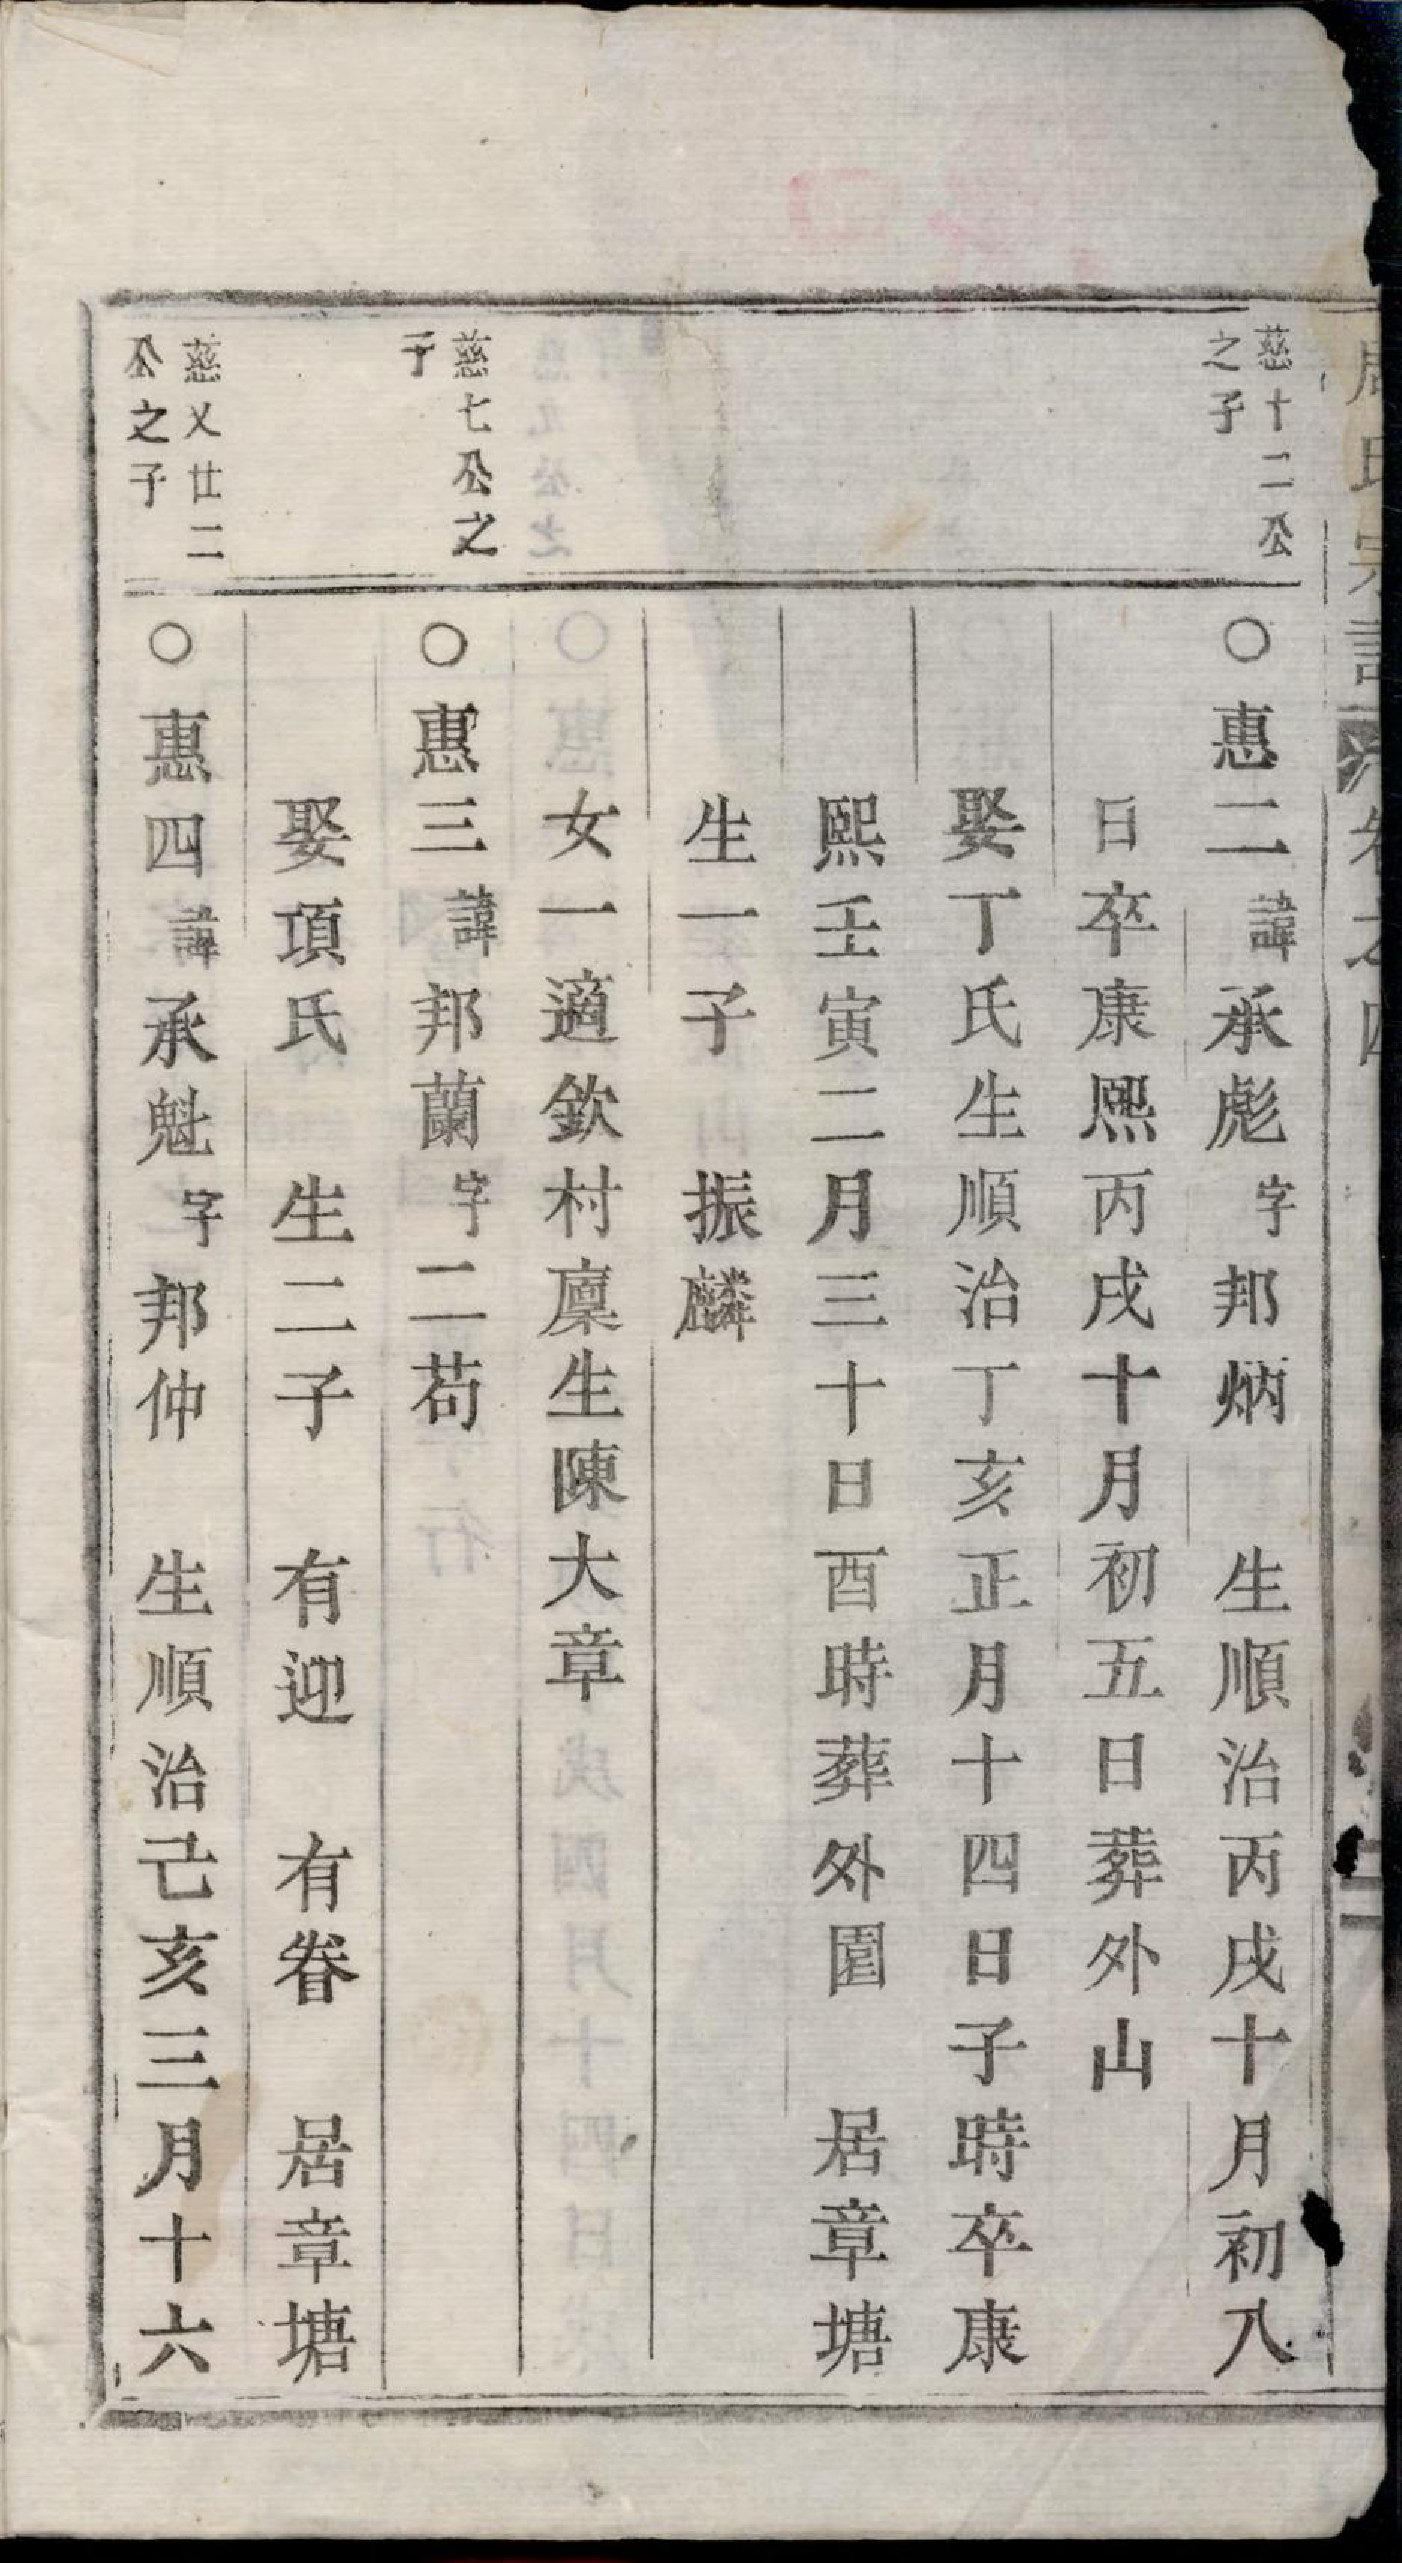 周氏宗譜 卷之四
慈十二公
之子
○惠二諱承彪字邦炳 生順治丙戌十月初八
日卒康熙丙戌十月初五日葬外山
娶丁氏生順治丁亥正月十四日子時卒康
熙壬寅二月三十日酉時葬外園 居章塘
生一子 振麟
女一適欽村廩生陳大章
慈七公之
子
○惠三諱邦蘭字二苟
娶項氏 生二子 有迎 有眷 居章塘
慈乂廿二
公之子
○惠四諱承魁字邦仲 生順治己亥三月十六